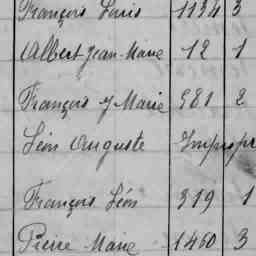 François Louis 1134 3
Albert Jean-Marie 12 1
François J Marie 581 2
Léon Auguste Impropr
François Léon 319 1
Pierre Marie 1460 3